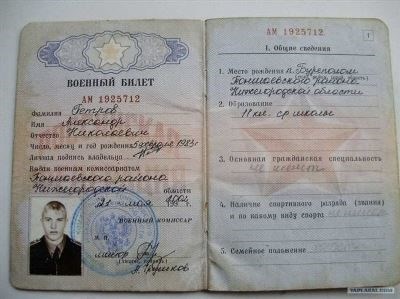 ВОЕННЫЙ БИЛЕТ
АМ 1925712
Фамилия Петров
Имя Александр
Отчество Николаевич
Число, месяц и год рождения 1983г
Личная подпись владельца
Выдан военным комиссариатом
Тоншаевского района
Нижегородской области
ВОЕННЫЙ КОМИССАР
М. П.
майор
АМ 1925712
1
I. Общие сведения
1. Место рождения п. Буреполом
Тоншаевского
Нижегородской области
2. Образование
11 кл. ср школы
3. Основная гражданская специальность
не имеет
4. Наличие спортивного разряда (звания)
и по какому виду спорта
5. Семейное положение
YAPLAKAL.COM